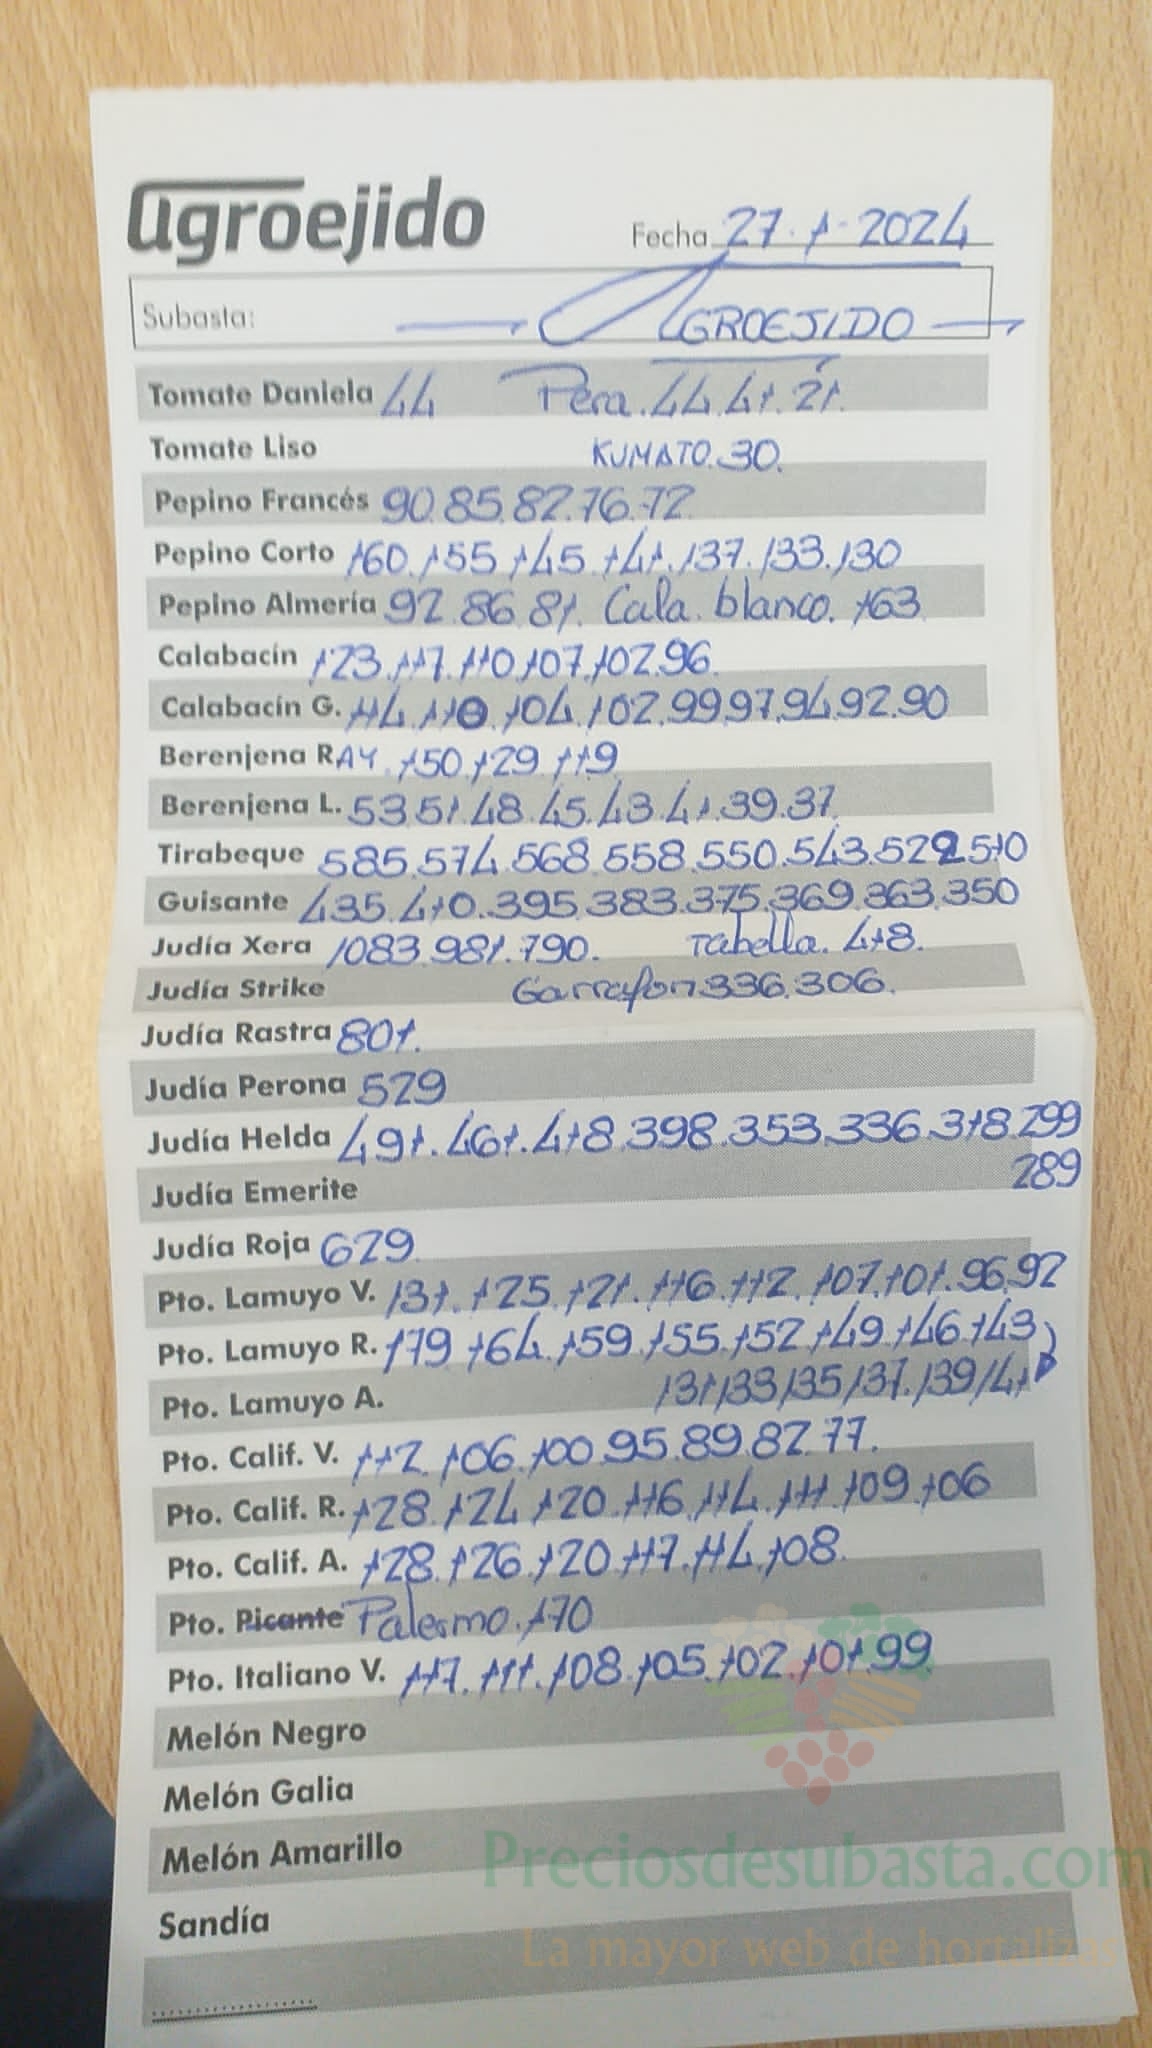 agroejido
Fecha 27-1-2024
Subasta: AGROEJIDO
Tomate Daniela 44 Pera. 44.41.21.
Tomate Liso KUMATO.30.
Pepino Francés 90.85.82.76.72
Pepino Corto 160.155.145.141.137.133.130
Pepino Almería 92.86.81. Cala. blanco. 163
Calabacín 123.117.110.107.102.96.
Calabacín G. 114.110.104.102.99.97.94.92.90
Berenjena RAY. 150.129.119
Berenjena L. 53.51.48.45.43.41.39.37.
Tirabeque 585.574.568.558.550.543.529.510
Guisante 435.410.395.383.375.369.363.350
Judía Xera 1083.981.790. Tabella. 418.
Judía Strike Garrafon 336.306.
Judía Rastra 801.
Judía Perona 529
Judía Helda 491.461.418.398.353.336.318.299
Judía Emerite 289
Judía Roja 629
Pto. Lamuyo V. 131.125.121.116.112.107.101.96.92
Pto. Lamuyo R. 179.164.159.155.152.149.146.143
Pto. Lamuyo A. 131/133/135/137/139/141
Pto. Calif. V. 112.106.100.95.89.82.77.
Pto. Calif. R. 128.124.120.116.114.111.109.106
Pto. Calif. A. 128.126.120.117.114.108.
Pto. Picante Palermo. 170
Pto. Italiano V. 117.111.108.105.102.101.99
Melón Negro
Melón Galia
Melón Amarillo
Preciosdesubasta.com
Sandía
La mayor web de hortalizas